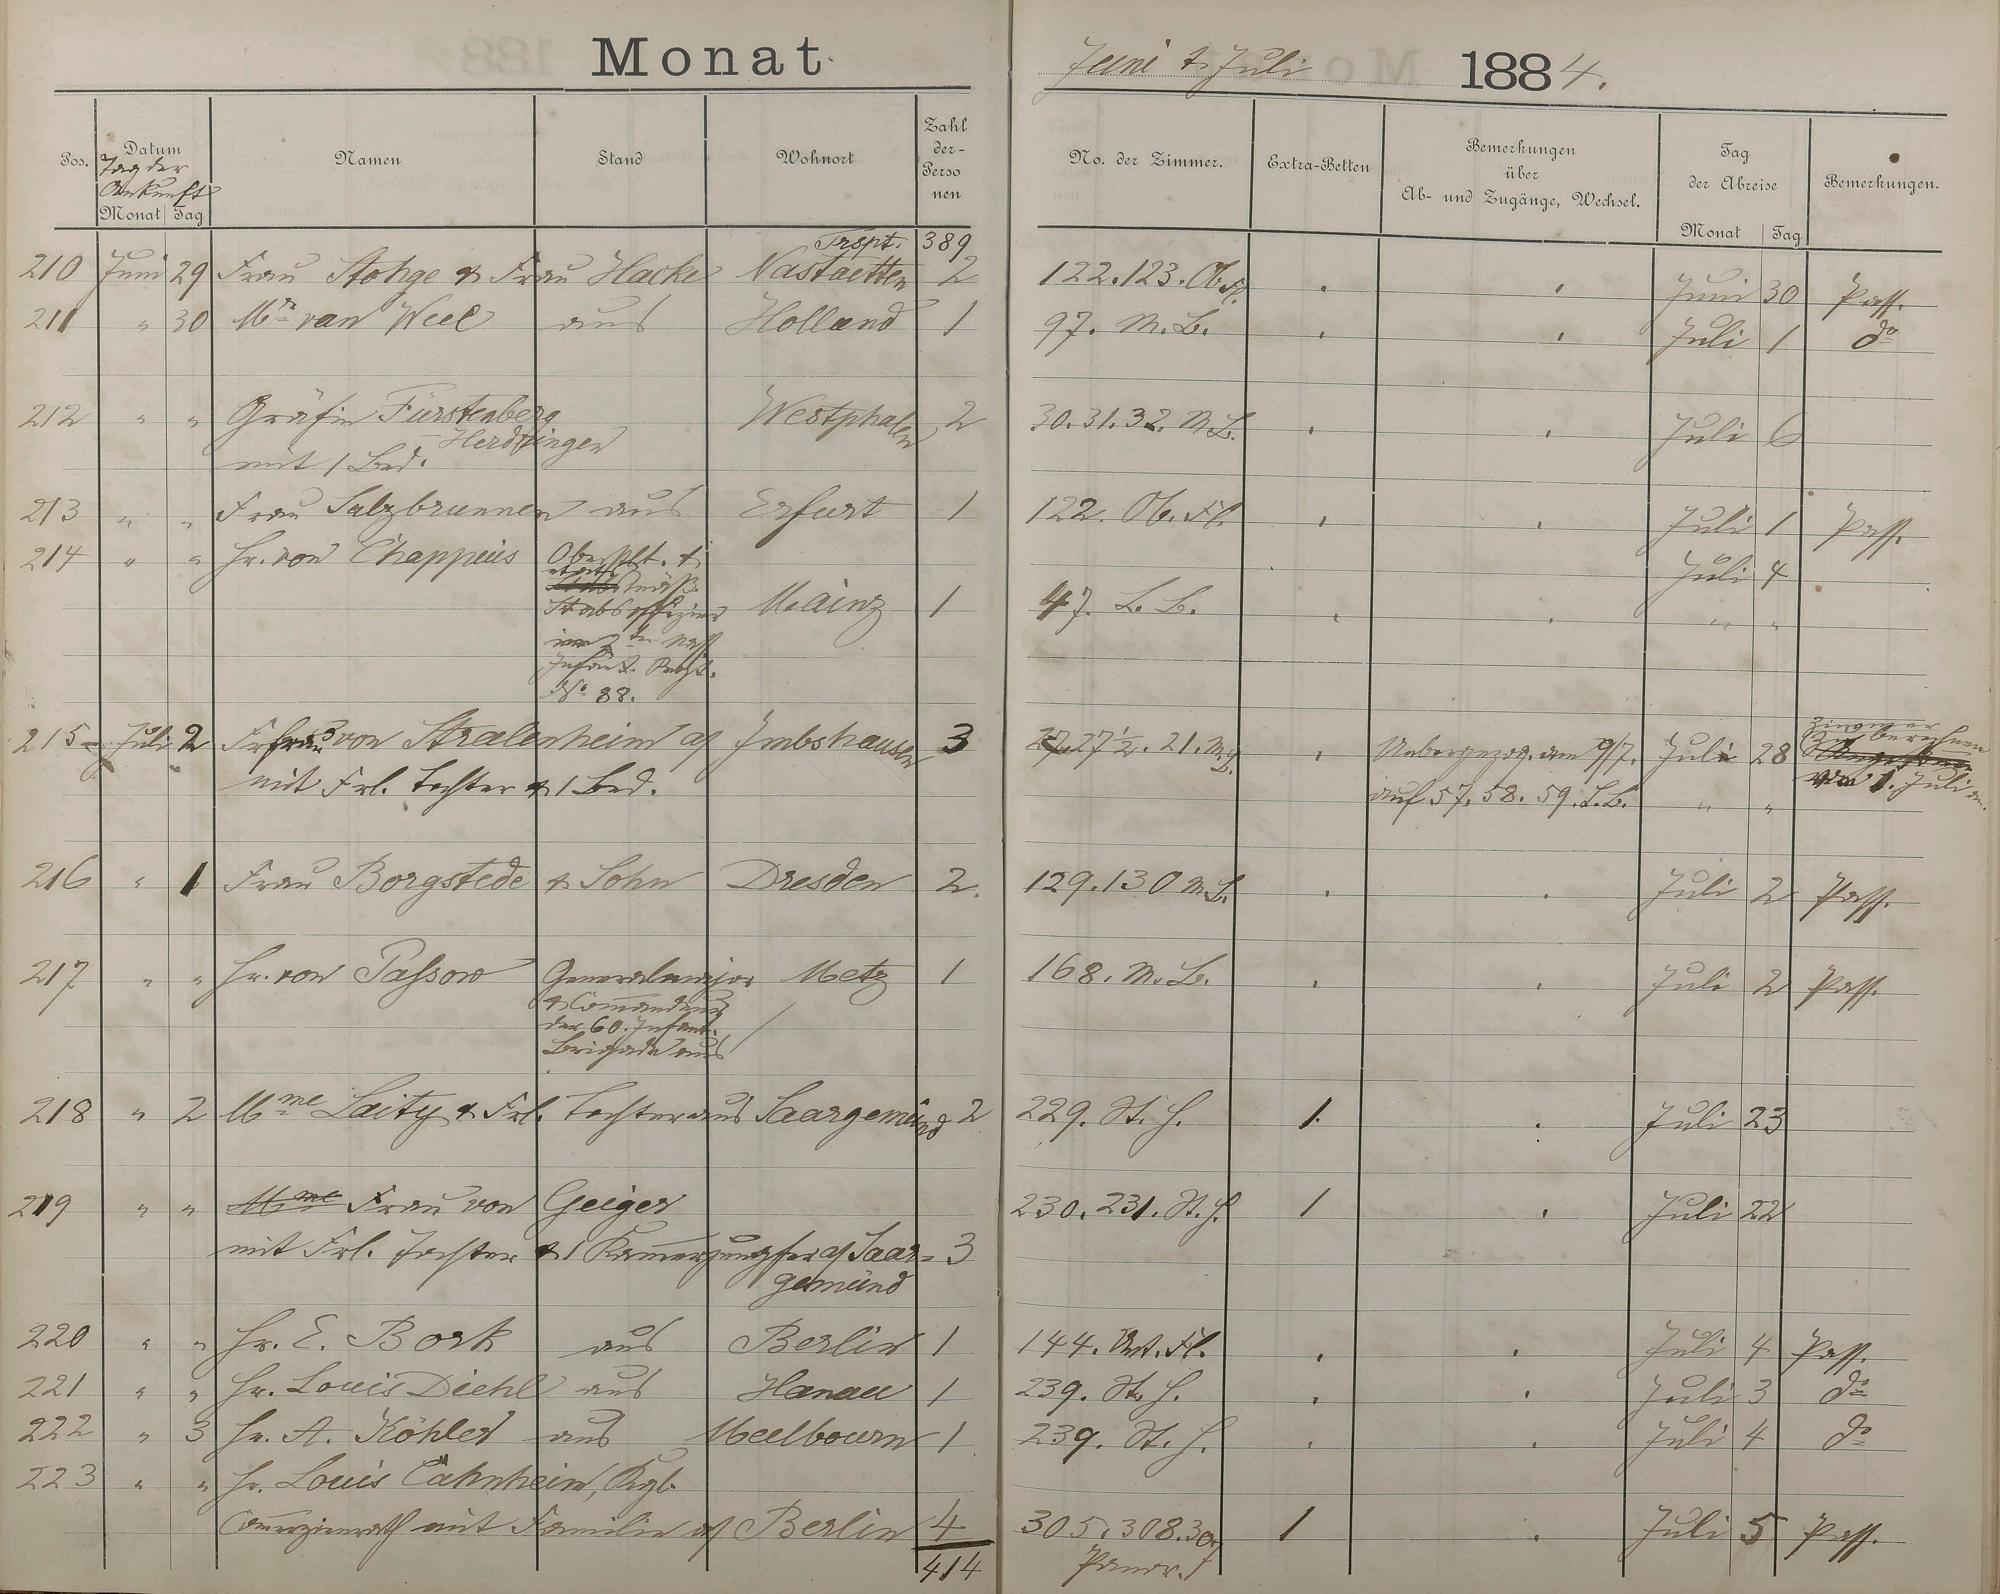 Monat Juni & Juli 1884.
Pos. Datum Namen Stand Wohnort Zahl der Personen No. der Zimmer. Extra-Betten Bemerkungen über Ab- und Zugänge, Wechsel. Tag der Abreise Bemerkungen.
Tag der Ankunft
Monat Tag Monat Tag
Trspt. 389
210 Juni 29 Frau Stohge & Frau Hacke Nastaetten 2 122.123. Ob. Fl. Juni 30 Pass.
211 " 30 Mr van Weel aus Holland 1 97. M. B. Juli 1 do
212 " " Gräfin Fürstenberg Westphalen 2 30. 31. 32. M. B. Juli 6
Herdringen
mit 1 Bed.
213 " " Frau Salzbrunnen aus Erfurt 1 122. Ob. Fl. Juli 1 Pass.
214 " " Hr. von Chappuis Oberstlt. & Juli 4
etatsmäß.
Stabsoffizier Mainz 1 47. L. B. " "
im 2ten Nass.
Infant. Regt.
No 88.
215 Juli 2 Frfrau von Stralenheim a/ Imbshausen 3 27. 27 1/2. 21. M. B. Uebergezog. am 9/7. Juli 28 Zimmer berechnen
mit Frl. Tochter & 1 Bed. auf 57. 58. 59. L. B. " " vom 1. Juli an.
216 " 1 Frau Borgstede & Sohn Dresden 2. 129. 130 M. B. Juli 2 Pass.
217 " " Hr. von Passow Generalmajor Metz 1 168. M. B. Juli 2 Pass.
& Commandeur
der 60. Infant.
Brigade aus
218 " 2 Mme Laity & Frl. Tochter aus Saargemünd 2 229. St. H. 1. Juli 23
219 " " Mme Frau von Geiger 230. 231. St. H. 1 Juli 22
mit Frl. Tochter & 1 Kammerjungfer a/ Saar- 3
gemünd
220 " " Hr. E. Bork aus Berlin 1 144. Unt. Fl. Juli 4 Pass.
221 " " Hr. Louis Diehl aus Hanau 1 239. St. H. Juli 3 do
222 " 3 Hr. A. Köhler aus Meelbourn 1 239. St. H. Juli 4 do
223 " " Hr. Louis Cahnheim, Kgl.
Commerzienrath mit Familie a/ Berlin 4 305. 308. 307 1 Juli 5 Pass.
414